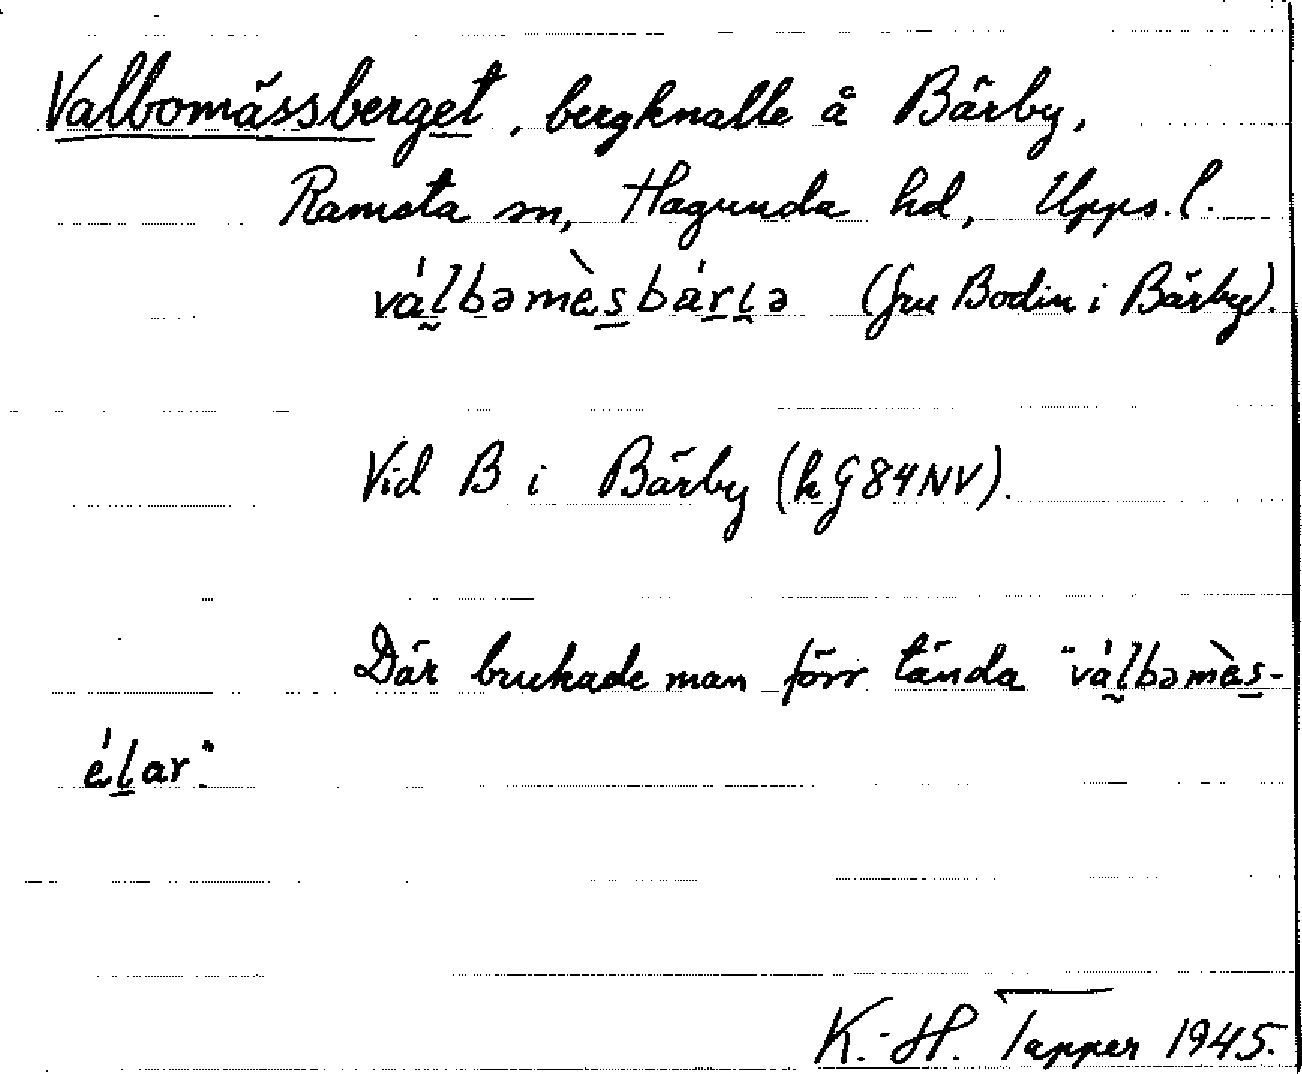 Valbomässberget, bergknalle å Bärby,
Ramsta sn, Hagunda hd, Upps. l.
válbəmὲsbárɩə (fru Bodin i Bärby).
Vid B i Bärby (k G 84 NV).
Där brukade man förr tända "válbəmὲs-
élar".
K.-H. Tapper 1945.